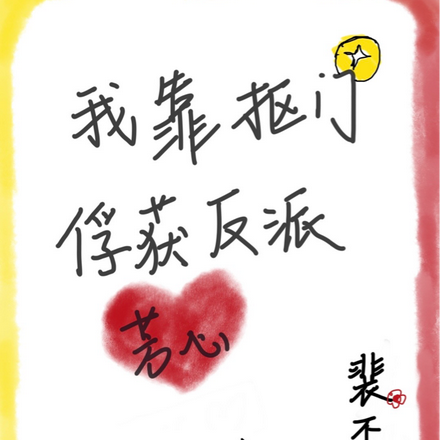 我靠抠门
俘获反派
芳心
裴不